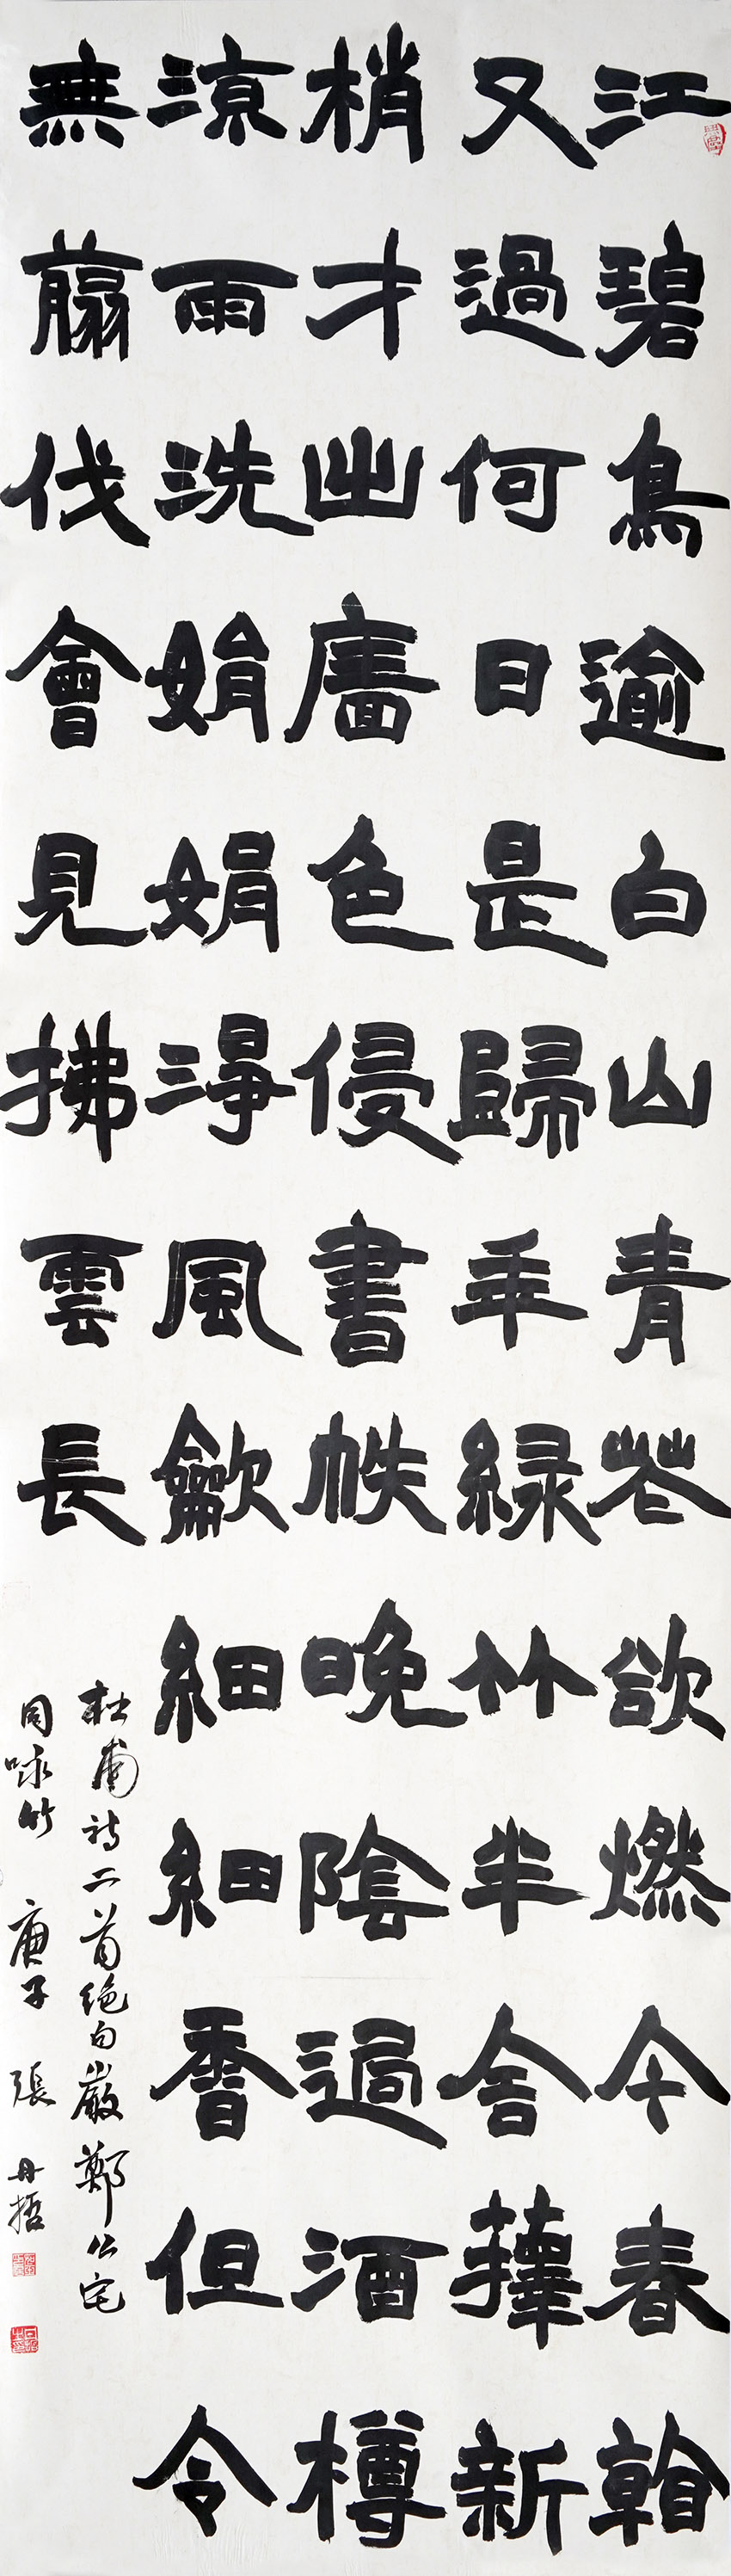 江碧鳥逾白山青花欲燃今春看
又過何日是歸年綠竹半含籜新
梢才出牆色侵書帙晚陰過酒樽
涼雨洗娟娟淨風龡細細香但令
無翦伐會見拂雲長
杜甫詩二首絕句嚴鄭公宅
同咏竹 庚子 張丹哲